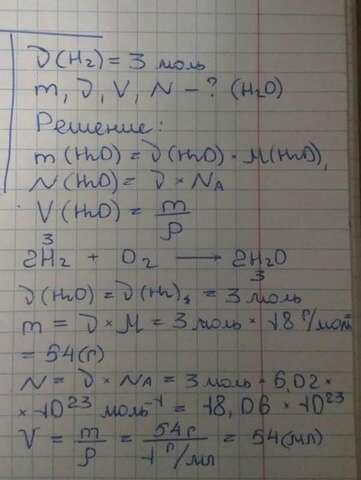 ν(H₂) = 3 моль
m, ν, V, N – ? (H₂O)
Решение:
m(H₂O) = ν(H₂O) · M(H₂O),
N(H₂O) = ν × NA
V(H₂O) = m/ρ
3
2H₂ + O₂ ⟶ 2H₂O
3
ν(H₂O) = ν(H₂) = 3 моль
m = ν × M = 3 моль × 18 г/моль
= 54(г)
N = ν × NA = 3 моль × 6,02 ×
× 10²³ моль⁻¹ = 18,06 × 10²³
V = m/ρ = 54г / 1 г/мл = 54(мл)